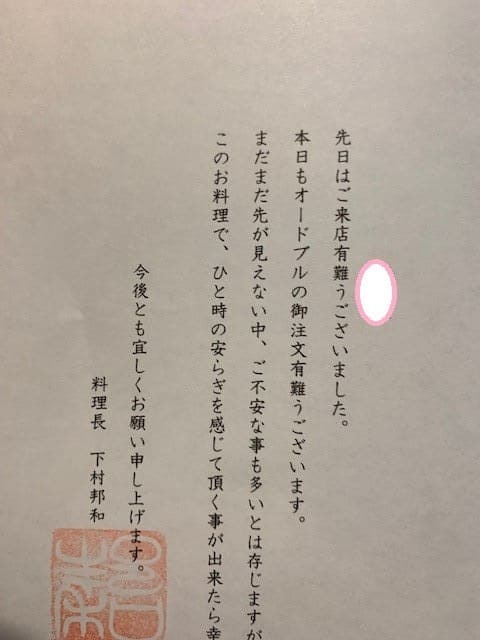 先日はご来店有難うございました。
本日もオードブルの御注文有難うございます。
まだまだ先が見えない中、ご不安な事も多いとは存じますが
このお料理で、ひと時の安らぎを感じて頂く事が出来たら幸
今後とも宜しくお願い申し上げます。
料理長 下村邦和